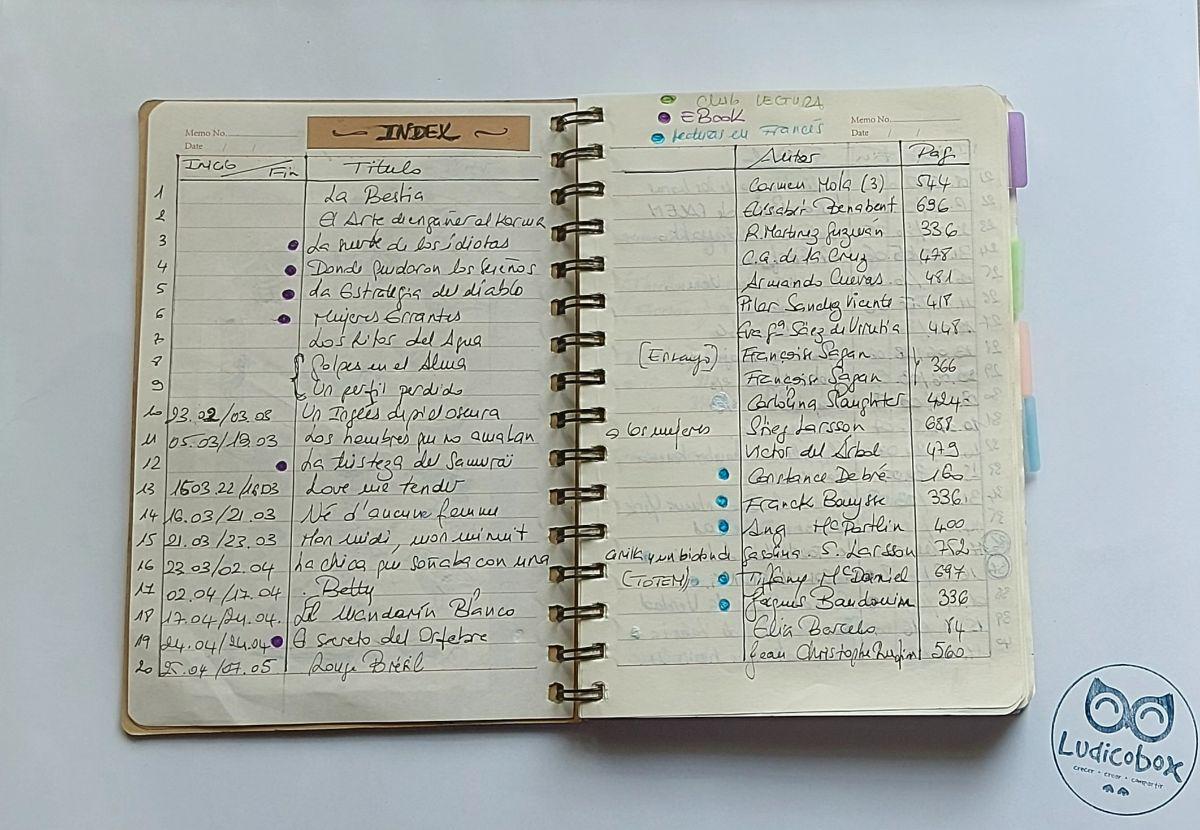 Memo No.
Date / /
INDEX
CLUB LECTURA
EBook
Lecturas en Francés
Memo No.
Date / /
INICIO / Fin Título Autor Pág
1 La Bestia Carmen Mola (3) 544
2 El Arte de engañar al Karma Elísabet Benabent 696
3 La suerte de los idiotas R. Martínez Guzmán 336
4 Donde perdaron los sueños C.G. de la Cruz 478
5 La Estrategia del diablo Armando Cuevas 481
6 Mujeres Errantes Pilar Sánchez Vicente 418
7 Los Ritos del Agua Eva Gª Sáez de Urrutia 448
8 Golpes en el Alma (Ensayo) Françoise Sagan
9 Un perfil perdido Françoise Sagan 366
10 23.02/03.03 Un Inglés de piel oscura Carolina Slaughter 424
11 05.03/19.03 Los hombres que no amaban a las mujeres Stieg Larsson 688
12 La tristeza del Samurái Víctor del Árbol 479
13 1503.22/16.03 Love me tender Constance Debré 160
14 16.03/21.03 Né d'aucune femme Franck Bouysse 336
15 21.03/23.03 Mon midi, mon minuit Ana McPartlin 400
16 23.03/02.04 La chica que soñaba con una cerilla y un bidón de gasolina. S. Larsson 752
17 02.04/17.04 Betty (TOTEM) Tiffany McDaniel 697
18 17.04/24.04 El Mandarín Blanco Jacques Baudouin 336
19 24.04/24.04 El secreto del Orfebre Elia Barceló 84
20 25.04/07.05 Rouge Brésil Jean Christophe Rufin 560
Ludicobox
crecer · crear · compartir